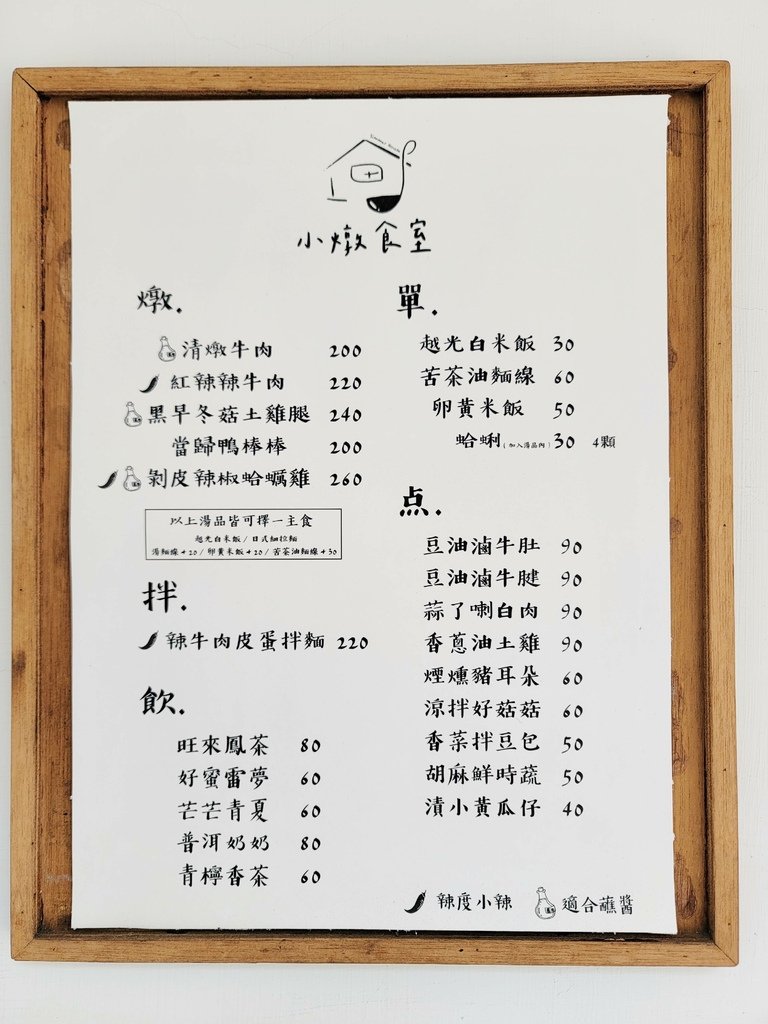 小燉食室
燉.
清燉牛肉 200
紅辣辣牛肉 220
黑早冬菇土雞腿 240
當歸鴨棒棒 200
剝皮辣椒蛤蠣雞 260
以上湯品皆可擇一主食
越光白米飯 / 日式細拉麵
湯麵線+20 / 卵黃米飯+20 / 苦茶油麵線+30
拌.
辣牛肉皮蛋拌麵 220
飲.
旺來鳳茶 80
好蜜雷夢 60
芒芒青夏 60
普洱奶奶 80
青檸香茶 60
單.
越光白米飯 30
苦茶油麵線 60
卵黃米飯 50
蛤蜊(加入湯品內) 30 4顆
点.
豆油滷牛肚 90
豆油滷牛腱 90
蒜了喇白肉 90
香蔥油土雞 90
煙燻豬耳朵 60
涼拌好菇菇 60
香菜拌豆包 50
胡麻鮮時蔬 50
漬小黃瓜仔 40
辣度小辣 適合蘸醬